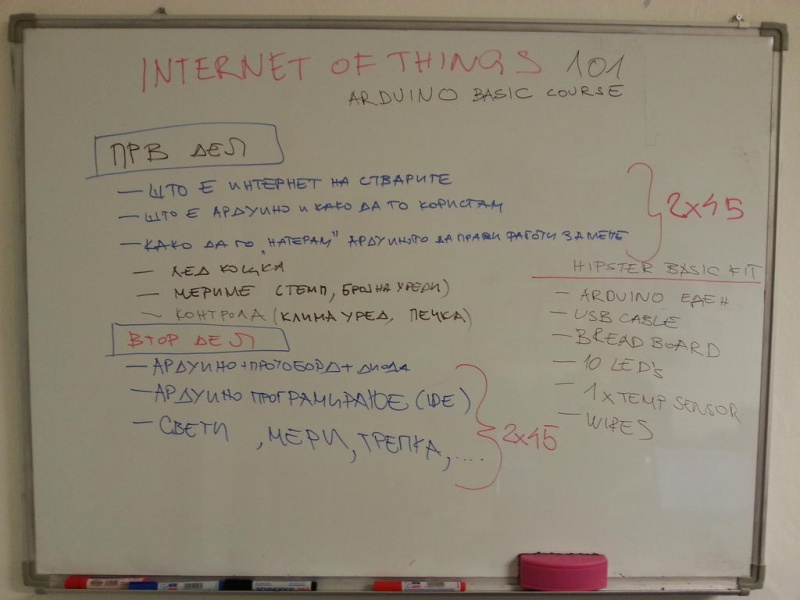 INTERNET OF THINGS 101
ARDUINO BASIC COURSE
ПРВ ДЕЛ
— ШТО Е ИНТЕРНЕТ НА СТВАРИТЕ
— ШТО Е АРДУИНО И КАКО ДА ГО КОРИСТАМ
— КАКО ДА ГО „НАТЕРАМ" АРДУИНОТО ДА ПРАВИ РАБОТИ ЗА МЕНЕ
— ЛЕД КОЦКА
— МЕРИМЕ (ТЕМП, БРОЈ НА УРЕДИ)
— КОНТРОЛА (КЛИМА УРЕД, ПЕЧКА)
2x45
ВТОР ДЕЛ
— АРДУИНО + ПРОТОБОРД + ДИОДА
— АРДУИНО ПРОГРАМИРАЊЕ (IDE)
— СВЕТИ, МЕРИ, ТРЕПКА, ....
2x45
HIPSTER BASIC KIT
— ARDUINO ЕДЕН
— USB CABLE
— BREAD BOARD
— 10 LED's
— 1x TEMP SENSOR
— WIRES